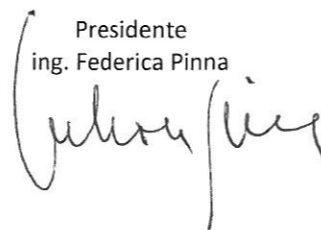 Presidente
ing. Federica Pinna